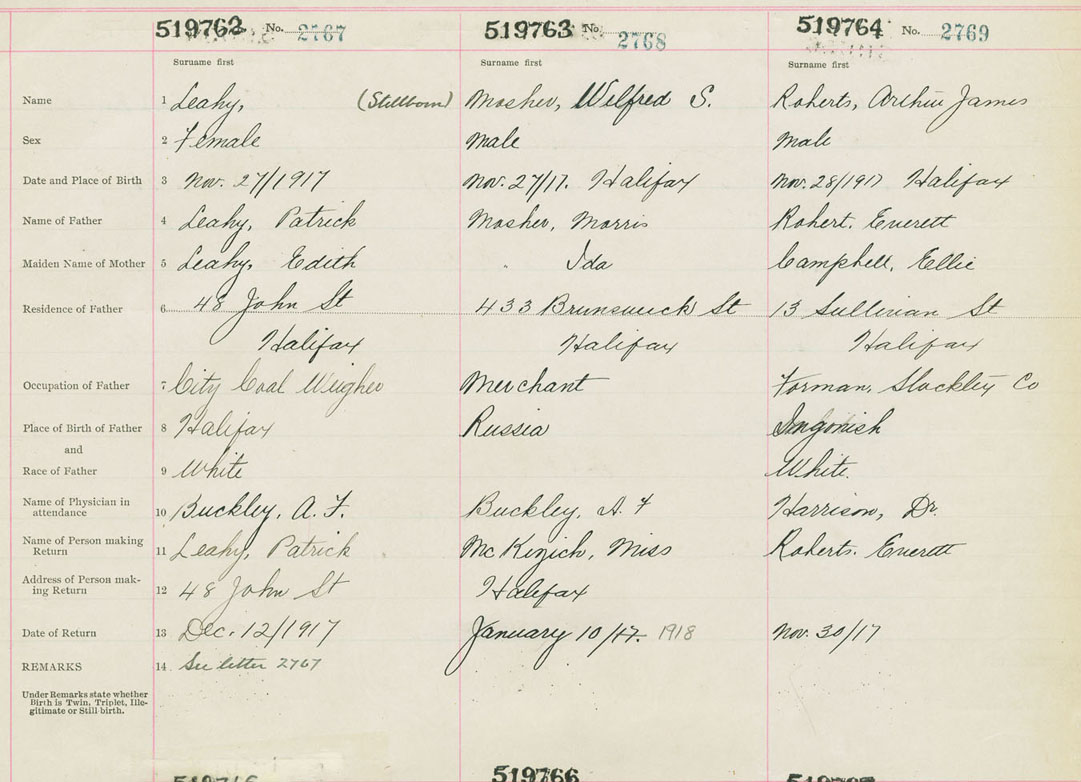 519762 No. 2767 519763 No. 2768 519764 No. 2769
Surname first Surname first Surname first
Name 1 Leahy, (Stillborn) Mosher, Wilfred S. Roberts, Arthur James
Sex 2 Female Male Male
Date and Place of Birth 3 Nov. 27/1917 Nov. 27/17. Halifax Nov. 28/1917 Halifax
Name of Father 4 Leahy, Patrick Mosher, Morris Robert. Everett
Maiden Name of Mother 5 Leahy, Edith " Ida Campbell, Ellie
Residence of Father 6 48 John St 433 Brunswick St 13 Sullivan St
Halifax Halifax Halifax
Occupation of Father 7 City Coal Weigher Merchant Forman, Stockley Co
Place of Birth of Father 8 Halifax Russia Ingonish
and
Race of Father 9 White White.
Name of Physician in
attendance 10 Buckley, A. F. Buckley, A. F Harrison, Dr.
Name of Person making
Return 11 Leahy, Patrick Miss Roberts. Everett
Address of Person mak-
ing Return 12 48 John St Halifax
Date of Return 13 Dec. 12/1917 January 10/17. 1918 Nov. 30/17
REMARKS 14 See letter 2767
Under Remarks state whether
Birth is Twin, Triplet, Ille-
gitimate or Still birth.
519766